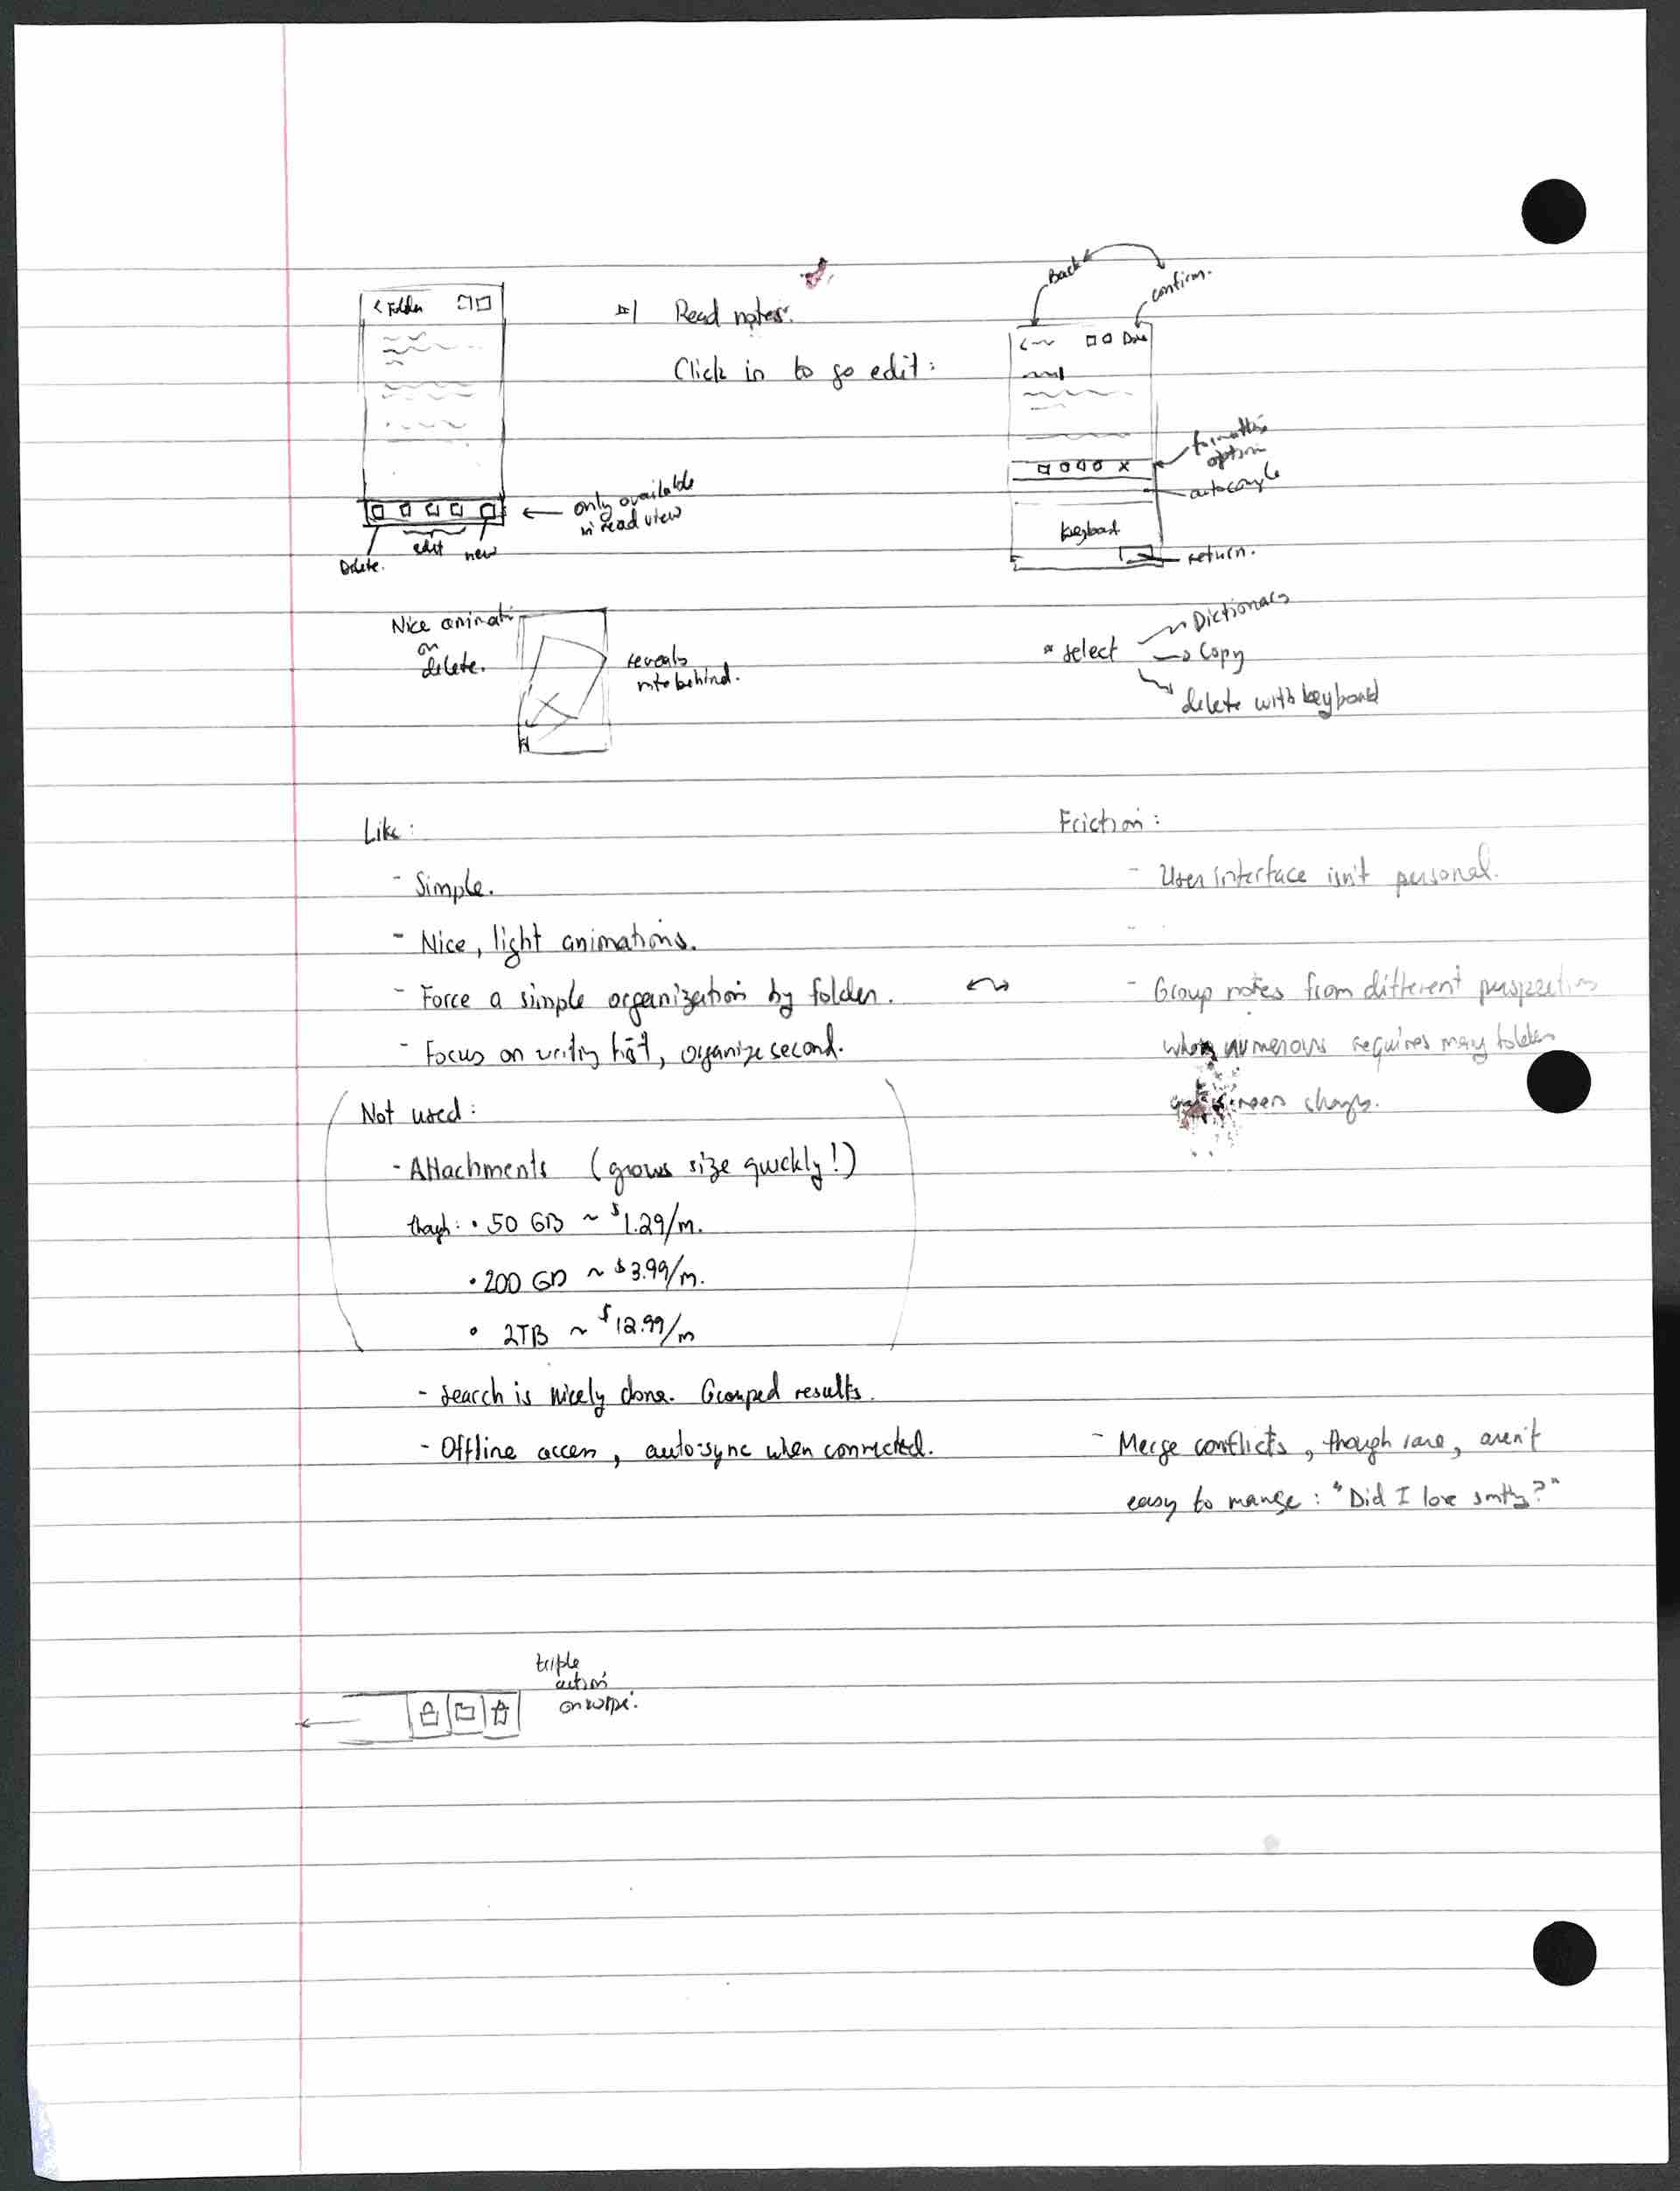 < Folder
Read notes.
Click in to go edit:
Back
confirm.
Done
formatting
option
Keyboard
return.
only available
in read view
Delete.
edit
new
Nice animati
on
delete.
reveals
note behind.
* select
Dictionary
→ Copy
delete with keyboard
Like :
- Simple.
- Nice, light animations.
- Force a simple organization by folder.
- Focus on writing first, organize second.
Not used :
- Attachments (grows size quickly!)
though: • 50 GB ~ $1.29/m.
• 200 GB ~ $3.99/m.
• 2TB ~ $12.99/m
- Search is nicely done. Grouped results.
- Offline access, auto-sync when connected.
Friction :
- User interface isn't personal.
-
- Group notes from different perspectives
numerous requires many folders
screen changes.
- Merge conflicts, though rare, aren't
easy to mange : "Did I lose smth?"
triple
action
on swipe.